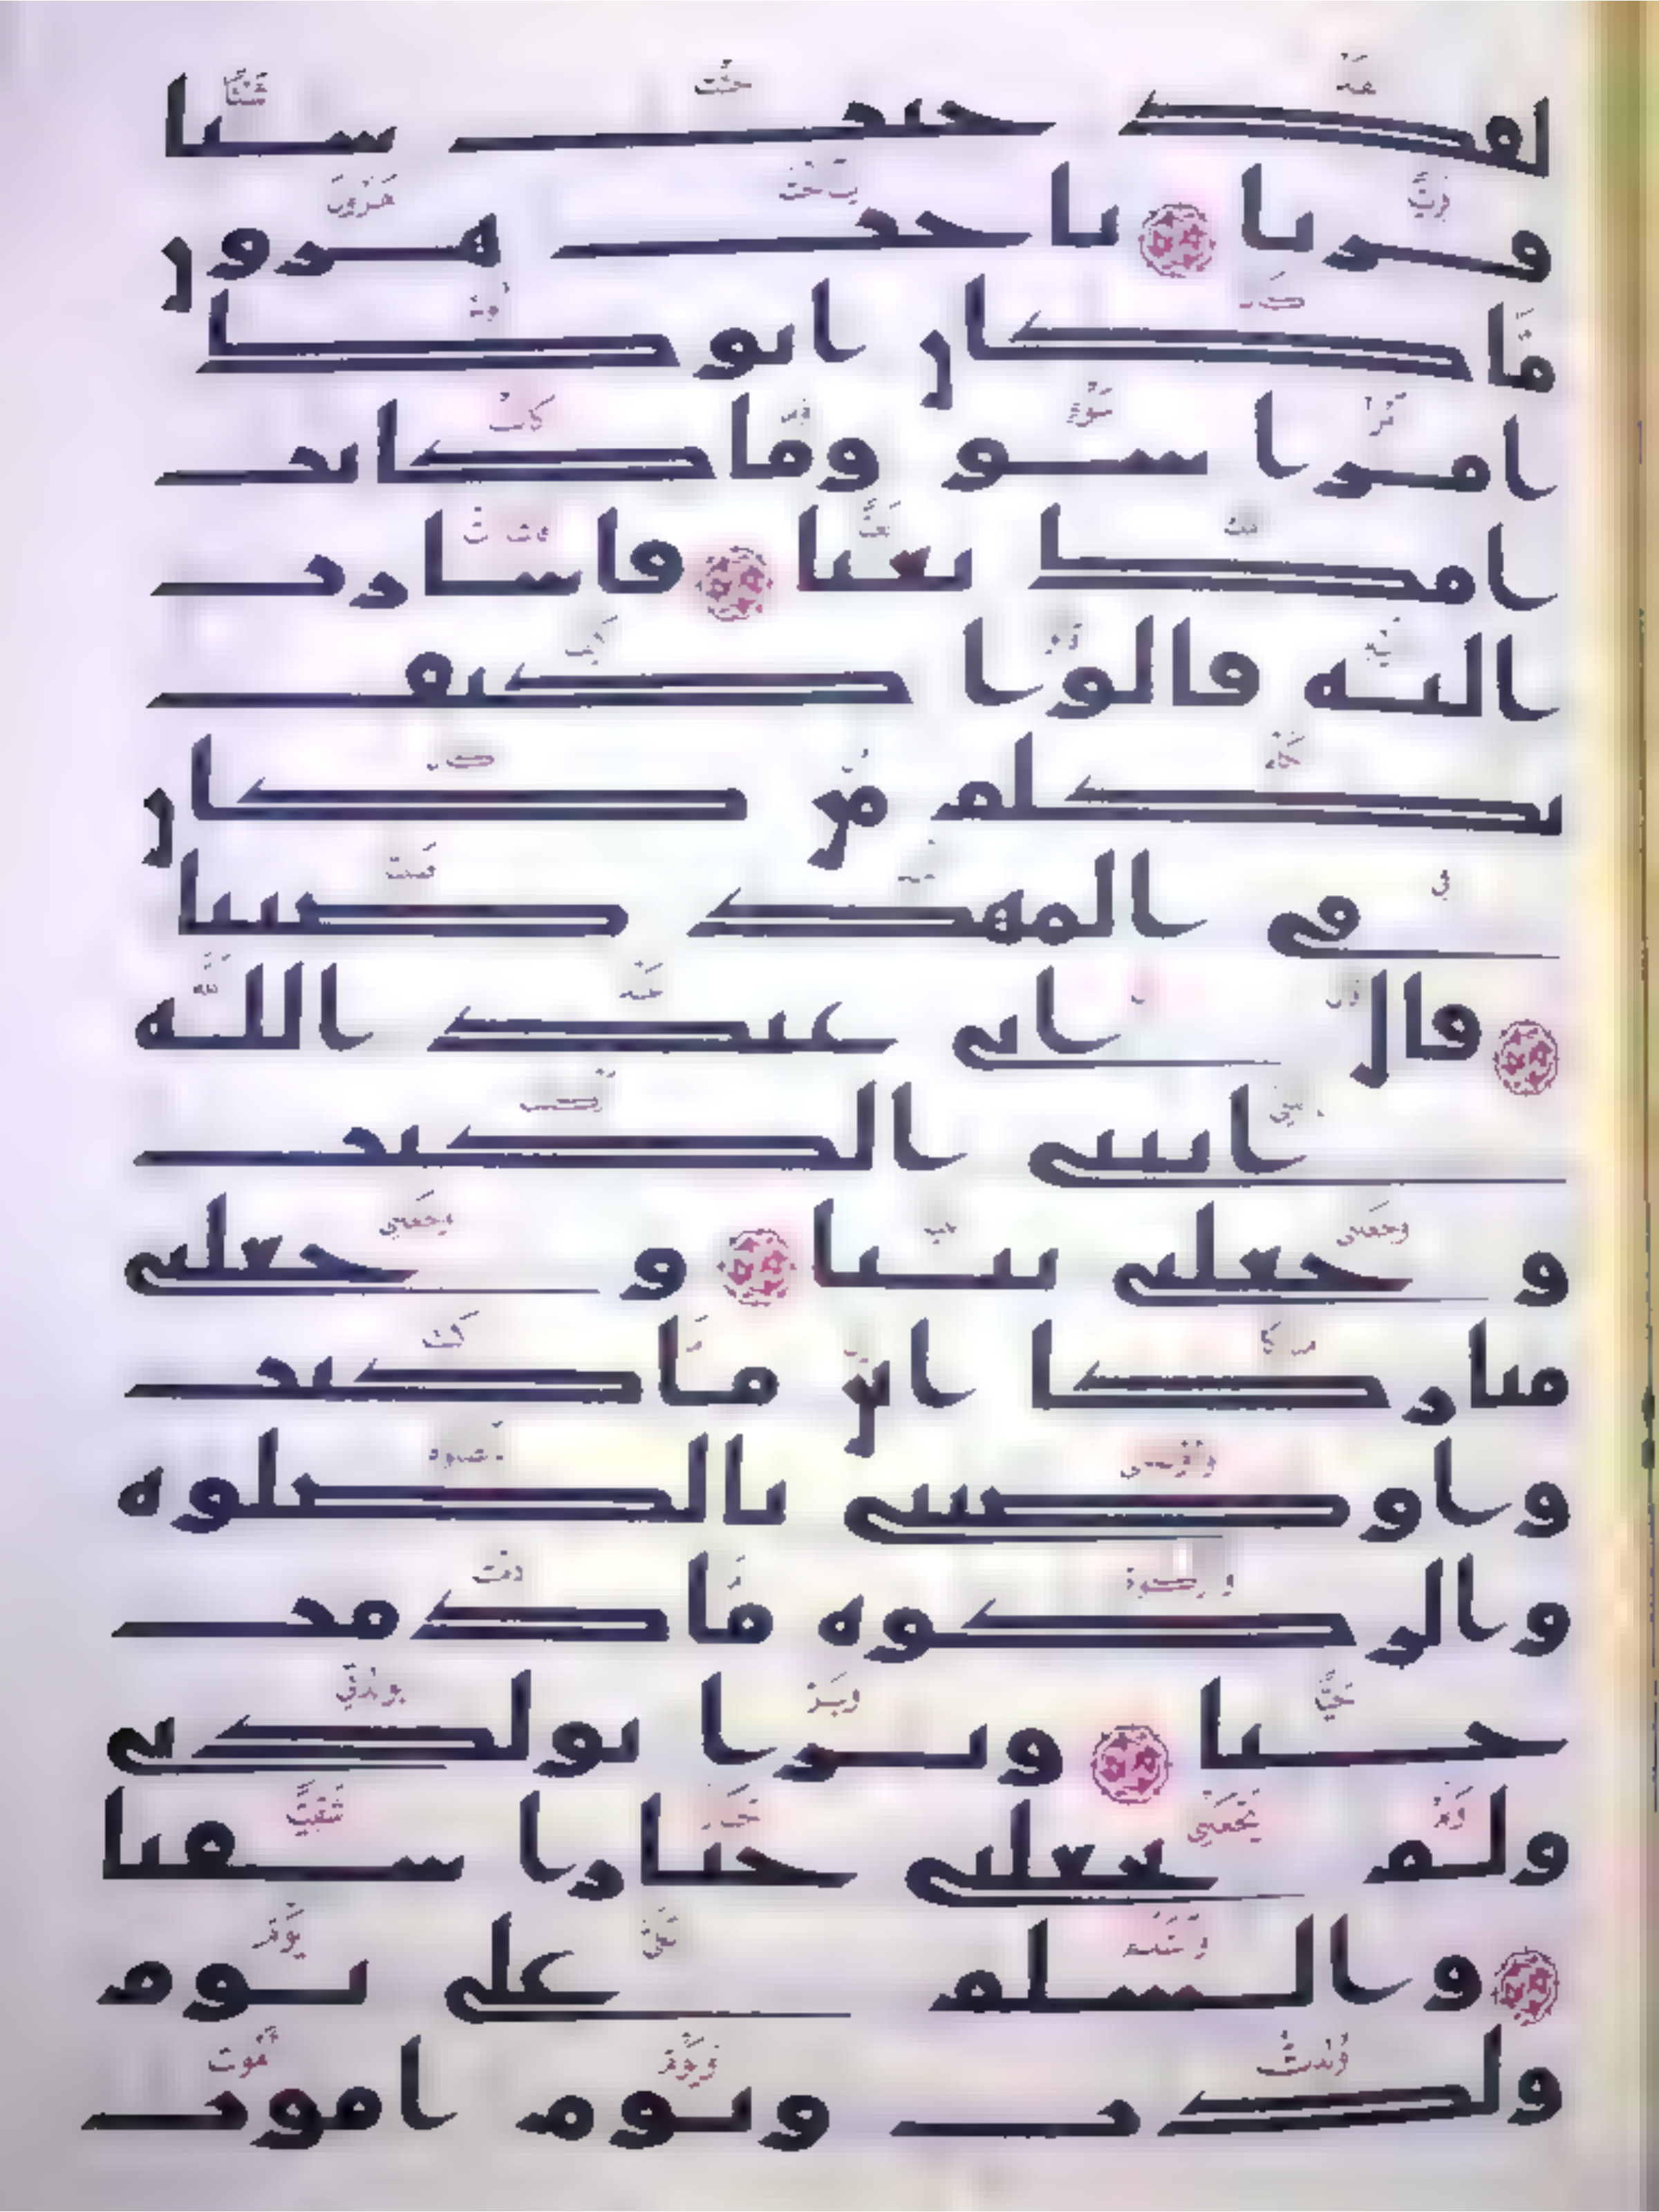 لقد جئت شيا
فريا ۝ ياخت هرون
ما كان ابوك
امرا سو وما كانت
امك بغيا ۝ فاشارت
اليه قالوا كيف
نكلم من كان
في المهد صبيا
۝ قال اني عبد الله
اتيني الكتب
و جعلني نبيا ۝ و جعلني
مباركا اين ما كنت
واوصيني بالصلوه
والزكوه ما دمت
حيا ۝ وبرا بولدتي
ولم يجعلني جبارا شقيا
۝ والسلم علي يوم
ولدت ويوم اموت